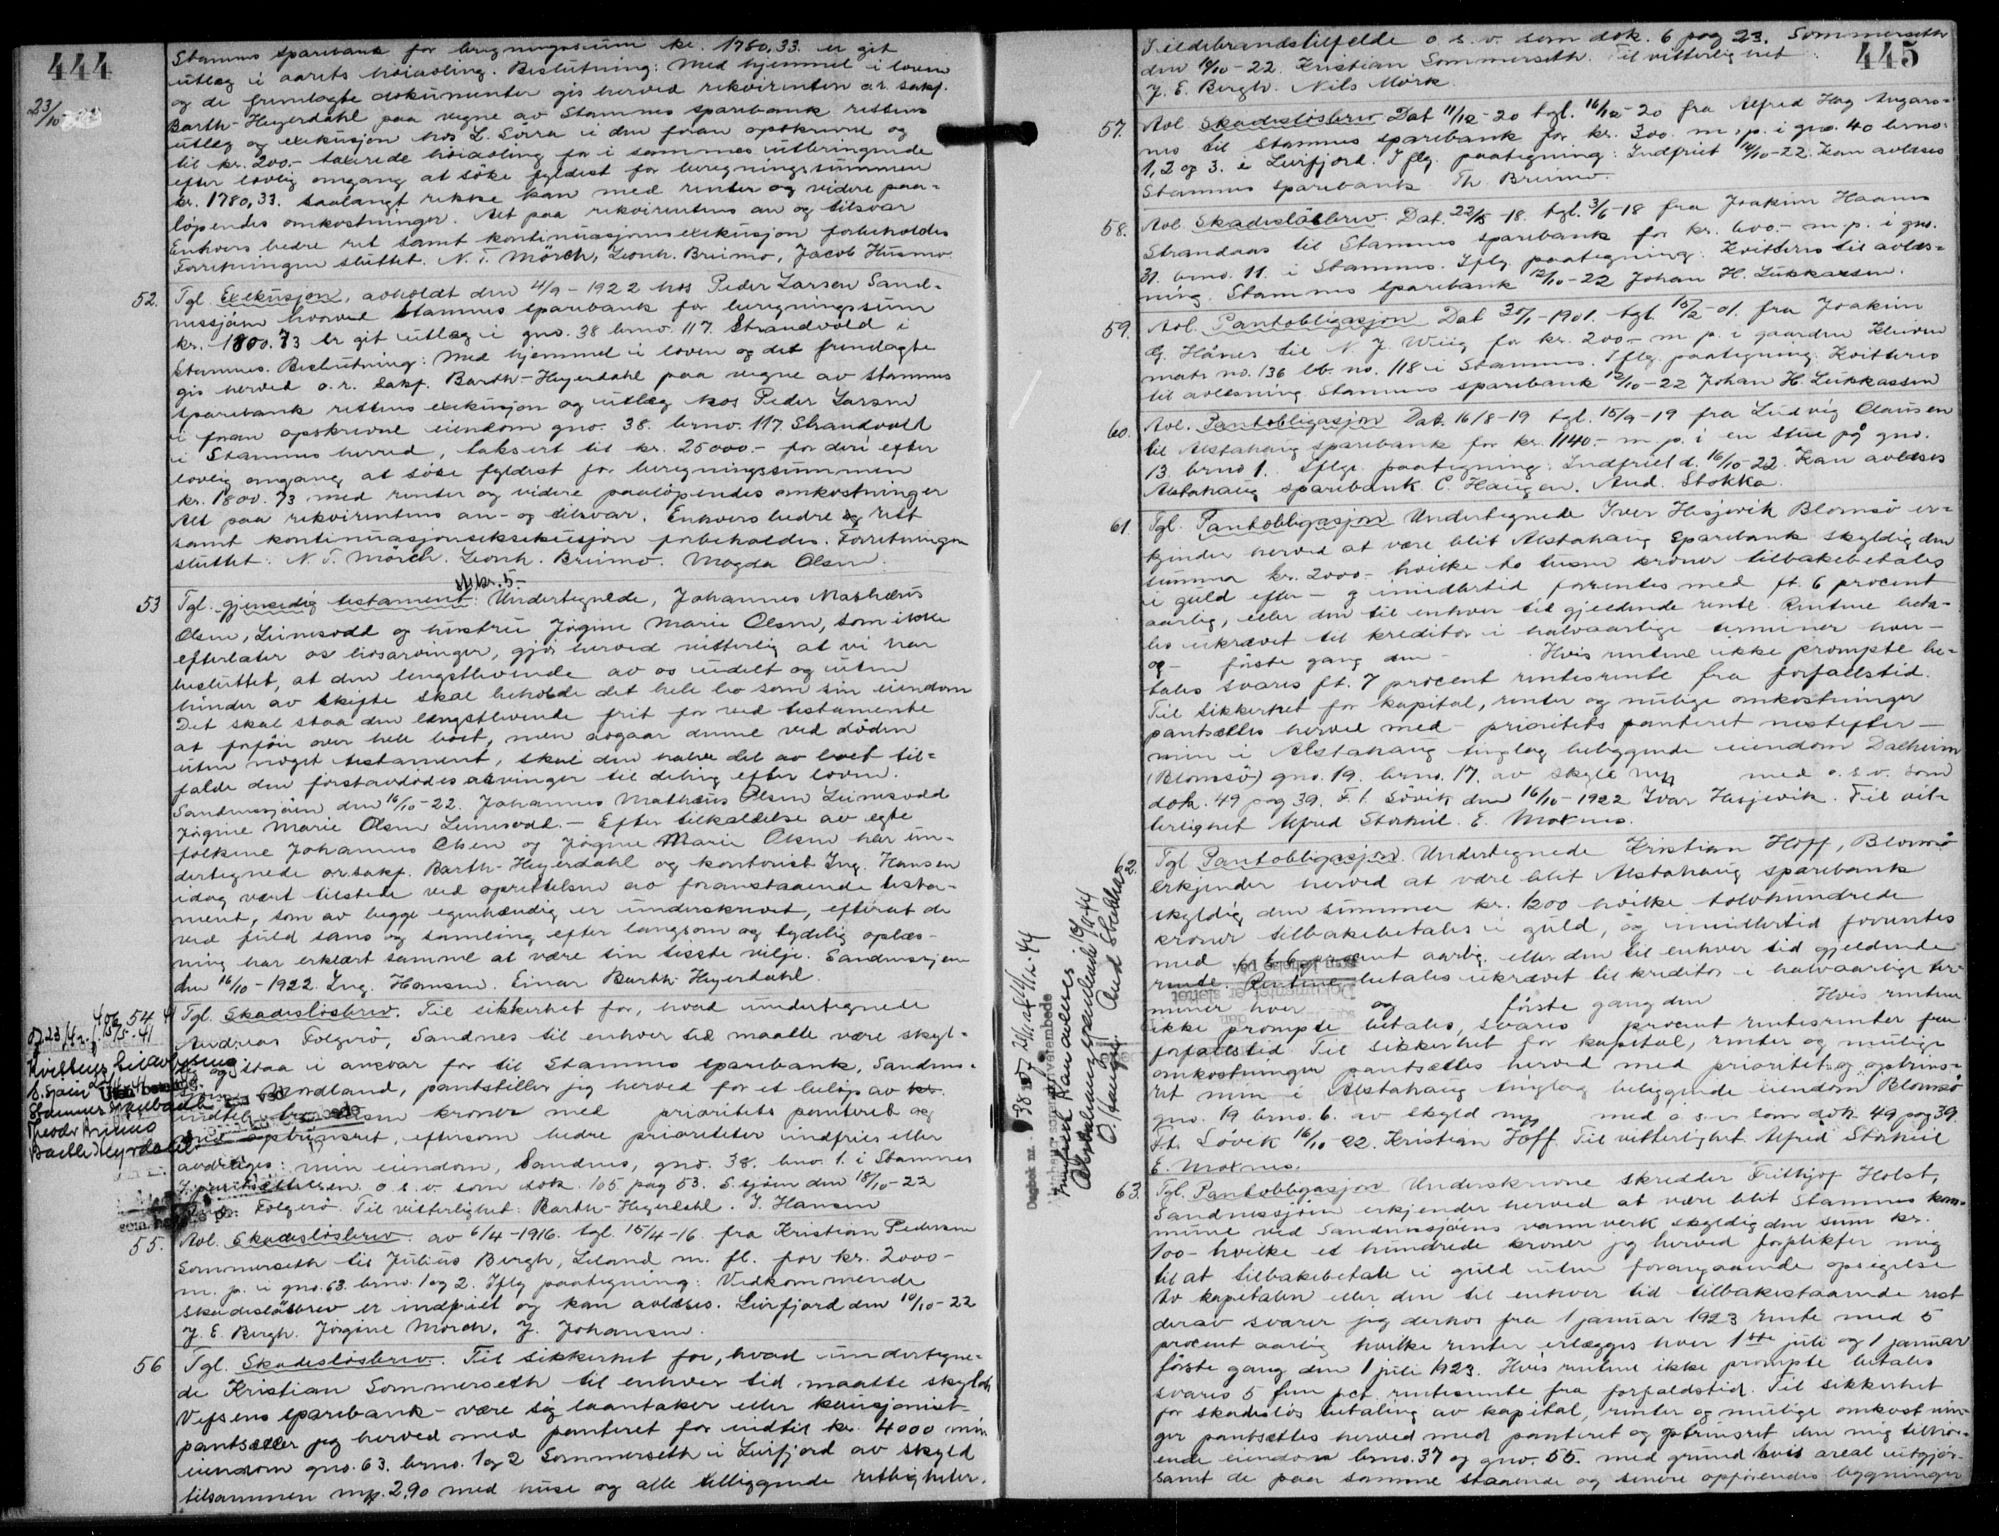 444
23/10
Stamnes sparebank for beregningssum kr. 1780,33. er git
utlæg i aarets høiavling. Beslutning: Med hjemmel i loven
og de fremlagte dokumenter gis herved rekvirenten o.r. sakf.
Barth-Heyerdahl paa vegne av Stamnes sparebank rettens
utlæg og exekusjon hos L. Sørra i den foran opskrevne og
til kr. 200.- takserede høiavling for i sammes utbringende
efter lovlig omgang at söke fyldest for beregningssummen
kr. 1780,33. saalangt rekke kan med renter og videre paa-
löpendes omkostninger. Alt paa rekvirentens an og tilsvar
Enhvers bedre ret samt kontinuasjonsexekusjon forbeholdes
Forretningen sluttet. N. T. Mörch, Leonh. Breimo, Jacob Husmo
52. Tgl. Exekusjon, avholdt den 4/9-1922 hos Peder Larsen Sand-
nessjøen hvorved Stamnes sparebank for beregningssum
kr. 1800.73 er git utlæg i gno. 38 brno. 117. Strandvold i
Stamnes. Beslutning: Med hjemmel i loven og det fremlagte
gis herved o.r. sakf. Barth-Heyerdahl paa vegne av Stamnes
sparebank rettens exekusjon og utlæg hos Peder Larsen
i foran opskrevne eiendom gno. 38. brno. 117. Strandvold
i Stamnes herred, taksert til kr. 25000.- for deri efter
lovlig omgang at söke fyldest for beregningssummen
kr. 1800.73 med renter og videre paalöpendes omkostninger
Alt paa rekvirentens an- og tilsvar. Enhvers bedre og ret
samt kontinuasjonseksekusjon forbeholdes. Forretningen
sluttet: N. T. Mörch. Leonh. Breimo. Magda Olsen.
kr. 5-
53 Tgl. gjensidig testament: Undertegnede, Johannes Mathæus
Olsen, Leinesodd og hustru Jørgine Marie Olsen, som ikke
efterlater os livsarvinger, gjør herved vitterlig at vi har
besluttet, at den lengstlevende av os udelt og uten
hinder av skifte skal beholde det hele bo som sin eiendom
Det skal staa den længstlevende frit for ved testamente
at forföie over hele boet, men avgaar denne ved döden
uten noget testament, skal den halve del av boet til-
falde den förstavdödes arvinger til deling efter loven.
Sandnessjøen den 16/10-22. Johannes Mathæus Olsen Leinesodd
Jørgine Marie Olsen Leinesodd. - Efter tilkaldelse av egte
folkene Johannes Olsen og Jørgine Marie Olsen har un-
dertegnede o.r.sakf. Barth-Heyerdahl og kontorist Ing. Hansen
idag vært tilstede ved oprettelsen av foranstaaende testa-
ment, som av begge egenhændig er underskrevet, efterat de
ved fuld sans og samling efter langsom og tydelig oplæs-
ning har erklært samme at være sin sisste vilje. Sandnessjøen
den 16/10-1922. Ing. Hansen. Einar Barth-Heyerdahl.
54 Tgl. Skadeslösbrev. Til sikkerhet for, hvad undertegnede
Andreas Folgerø, Sandnes til enhver tid maatte være skyl-
dig og staa i ansvar for til Stamnes sparebank, Sandnes-
sjøen Nordland, pantstiller jeg herved for et beløp av kr.
indtil kroner med prioritets panteret og
med optrinsret, eftersom bedre prioriteter indfries eller
avdrages: min eiendom, Sandnes, gno. 38. bno. 1. i Stamnes
o.s.v. som dok. 105 pag 53. S.sjøen den 18/10-22
Folgerø Til vitterlighet: Barth-Heyerdahl. I. Hansen
55. Avl. Skadeslösbrev. av 6/4-1916. tgl. 15/4-16. fra Kristian Pedersen
Sommerseth til Julius Bergh, Leland m. fl. for kr. 2000-
m. p. i gno. 63. brno. 1 og 2. Iflg paategning: Vedkommende
skadeslösbrev er indfriet og kan avlæses. Leirfjord den 10/10-22
J. E. Bergh. Jørgine Mörch. J. Johansen.
56 Tgl. Skadeslösbrev. Til sikkerhet for, hvad undertegne-
de Kristian Sommerseth til enhver tid maatte skylde
Vefsens sparebank - være sig laantaker eller kausjonist-
pantsætter jeg herved med panteret for indtil kr. 4000 min
eiendom gno. 63. brno. 1 og 2 Sommerseth i Leirfjord av skyld
tilsammen mrk 2.90 med huse og alle tilliggende rettigheter.
445
I ildebrandstilfelde o s. v. som dok. 6 pag 23. Sommerseth
den 14/10-22. Kristian Sommerseth. Til vitterlighet:
J. E. Bergh. Nils Mörk.
57. Avl. Skadeslösbrev Dat 11/12-20 tgl. 16/12-20 fra Alfred Hag Angars-
nes til Stamnes sparebank for kr. 300. m. p. i gno. 40 brno.
1, 2 og 3. i Leirfjord. Iflg. paategning: Indfriet 14/10-22. Kan avlæses
Stamnes sparebank Th. Breimo.
58. Avl. Skadeslösbrev. Dat. 22/5-18. tgl. 3/6-18 fra Joakim Haanes
Strandaas til Stamnes sparebank for kr. 600.- m.p. i gno.
31. brno. 11. i Stamnes. Iflg paategning: Kvitteres til avlæs-
ning. Stamnes sparebank 12/10-22 Johan H. Lukkassen.
59. Avl. Pantobligasjon Dat 30/1-1901. tgl. 15/2-01. fra Joakim
G. Hånes til N. J. Wiig for kr. 200.- m p. i gaarden Kleiven
matr no. 136 lb. no. 118 i Stamnes. Iflg. paategning: Kvitteres
til avlæsning Stamnes sparebank 12/10-22 Johan H. Lukkassen
60. Avl. Pantobligasjon Dat. 16/8-19 tgl. 15/9-19 fra Ludvig Clausen
til Alstahaug sparebank for kr. 1140.- m. p. i en stue på gno.
13. brno 1. Iflge. paategning: Indfriet d. 16/10-22. Kan avlæses
Alstahaug sparebank C. Haugen. And. Stokka.
61 Tgl. Pantobligasjon Undertegnede Iver Hesjevik Blomsö er-
kjender herved at være blit Alstahaug Sparebank skyldig den
summa kr. 2000.- hvilke to tusen kroner tilbakebetales
i guld efter - og imidlertid forrentes med ft. 6 procent
aarlig, eller den til enhver tid gjældende rente. Rentene beta-
les ukrævet til kreditor i halvaarlige terminer hver -
og - förste gang den - Hvis rentene ikke prompte be-
tales svares ft. 7 procent rentesrente fra forfaldstid.
Til sikkerhet for kapital, renter og mulige omkostninger
pantsættes herved med - prioritets panteret nestefter -
min i Alstahaug tinglag beliggende eiendom Dalheim
(Blomsö) gno. 19. brno. 17. av skyld mrk med o. s. v. som
dok. 49 pag 39. F. t. Sövik den 16/10-1922 Ivar Hesjevik. Til vit-
terlighet Alfred Storkul. E. Moxnes.
62. Tgl Pantobligasjon. Undertegnede Kristian Hoff, Blomsö
erkjender herved at være blit Alstahaug sparebank
skyldig den summer kr. 1200 hvilke tolvhundrede
kroner tilbakebetales i guld, og imidlertid forrentes
med ft 6 procent aarlig. eller den til enhver tid gjeldende
rente. Rentene betales ukrævet til kreditor i halvaarlige ter-
miner hver og förste gang den Hvis rentene
ikke prompte betales, svares procent rentesrenter fra
forfaldstid. Til sikkerhet for kapital, renter og mulige
omkostninger pantsættes herved med prioritets og optrins-
ret min i Alstahaug tinglag beliggende eiendom Blomsö
gno. 19 brno. 6. av skyld mrk med o s. v som dok 49 pag 39.
F.t. Sövik 16/10-22. Kristian Hoff Til vitterlighet Alfred Storkul
E. Moxnes.
63. Tgl. Pantobligasjon Underskrevne skredder Frithjof Holst,
Sandnessjøen erkjender herved at være blit Stamnes kom-
mune ved Sandnessjøens vannverk skyldig den sum kr.
100- hvilke et hundrede kroner jeg herved forplikter mig
til at tilbakebetale i guld uten forangaaende opsigelse
Av kapitalen eller den til enhver tid tilbakestaaende rest
derav svarer jeg derhos fra 1 januar 1923 rente med 5
procent aarlig hvilke renter erlægges hver 1ste juli og 1 januar
förste gang den 1 juli 1923. Hvis rentene ikke prompte betales
svares 5 fem pct rentesrente fra forfaldstid. Til sikkerhet
for skadeslös betaling av kapital, renter og mulige omkostnin-
ger pantsættes herved med panteret og optrinsret den mig tilhör-
ende eiendom brno. 37 og gno. 55. med grund hvis areal utgjör-
samt de paa samme staaende og senere opförendes bygninger